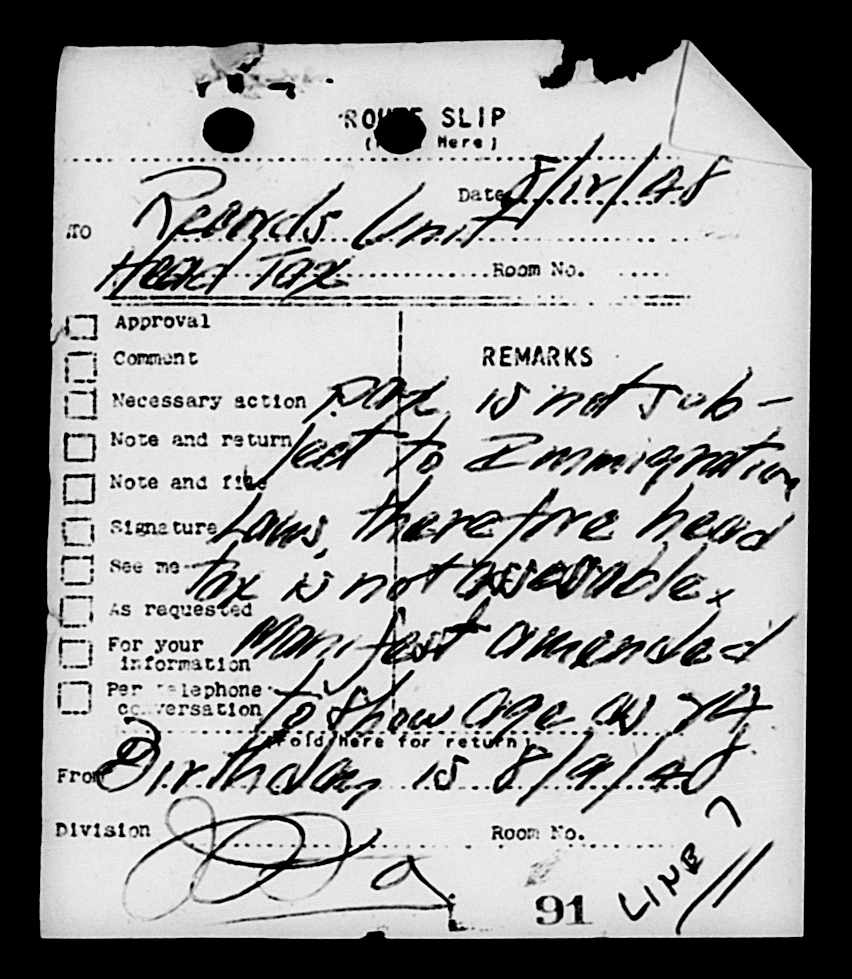 ROUTE SLIP
( Here)
Date 8/12/48
TO Records Unit
Head Tax Room No.
Approval
Comment REMARKS
Necessary action Pax is not sub-
Note and return ject to Immigration
Note and file
Signature Laws, therefore head
See me tax is not assessable.
As requested
For your Manifest amended
information
Per telephone
conversation to show age as 74
(Fold here for return)
From Birthday is 8/9/48
Division Room No.
91 LINE 7
11